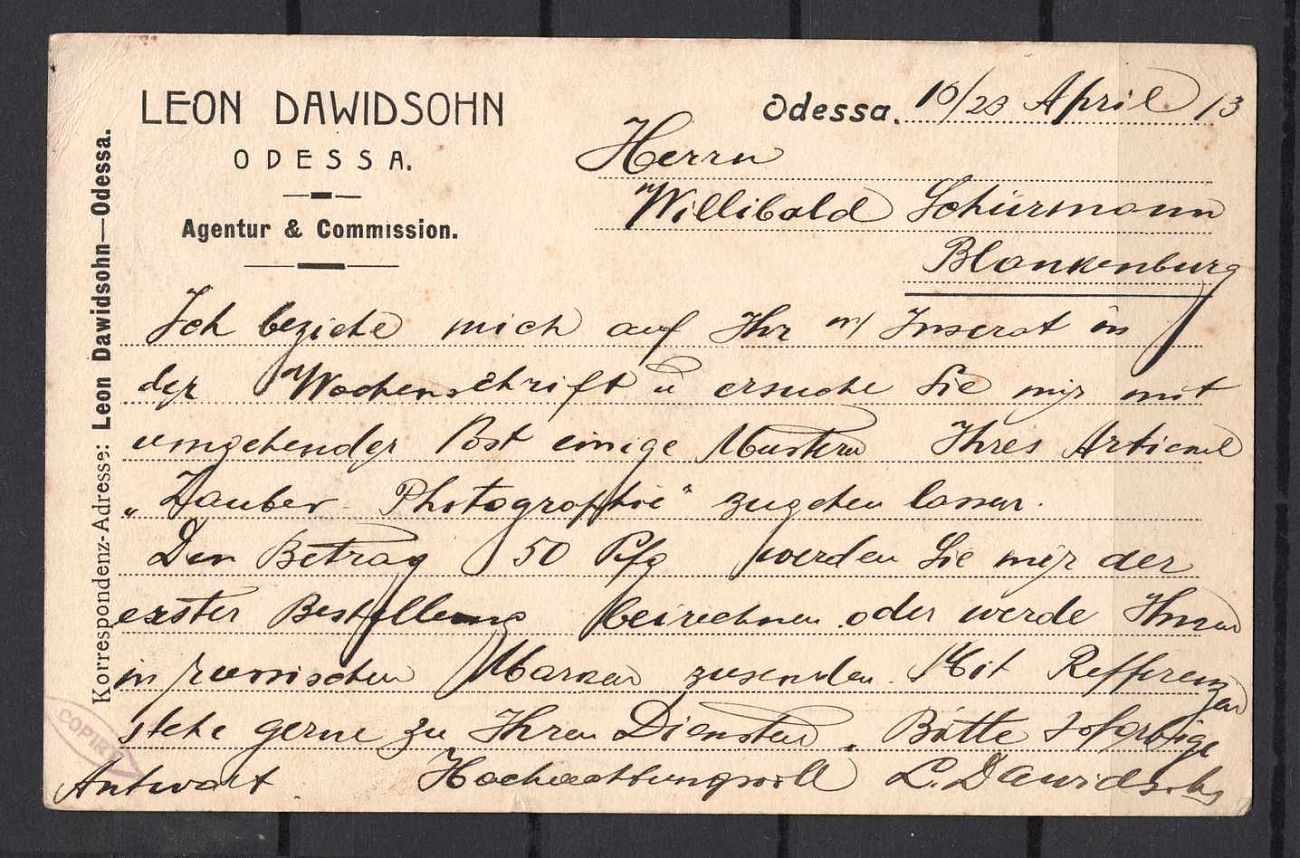 LEON DAWIDSOHN
ODESSA.
Agentur & Commission.
Korrespondenz-Adresse: Leon Dawidsohn—Odessa.
Odessa. 10/23 April 13
Herrn
Willibald Schürmann
Blankenburg
Ich beziehe mich auf Ihr Inserat in
der Wochenschrift u ersuche Sie mir mit
umgehender Post einige Mustern Ihres Artickel
„Zauber-Photographie" zugehen lassen.
Den Betrag 50 Pfg werden Sie mir der
erster Bestellung beirechnen oder werde Ihnen
in russischen Marken zusenden. Mit Refferenzen
stehe gerne zu Ihren Diensten. Bitte sofortige
Antwort Hochachtungsvoll L. Dawidsohn
COPIRT